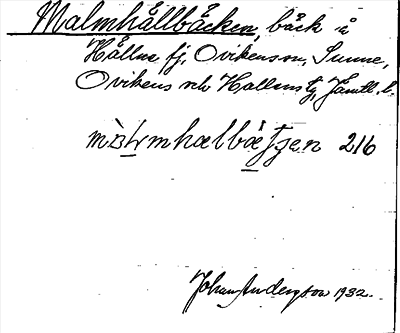 Malmhållbäcken, bäck i
Hållne fj, Ovikensson, Sunne,
Ovikens och Hallens tg, Jämtl. l.
216
Johan Anderson 1932.